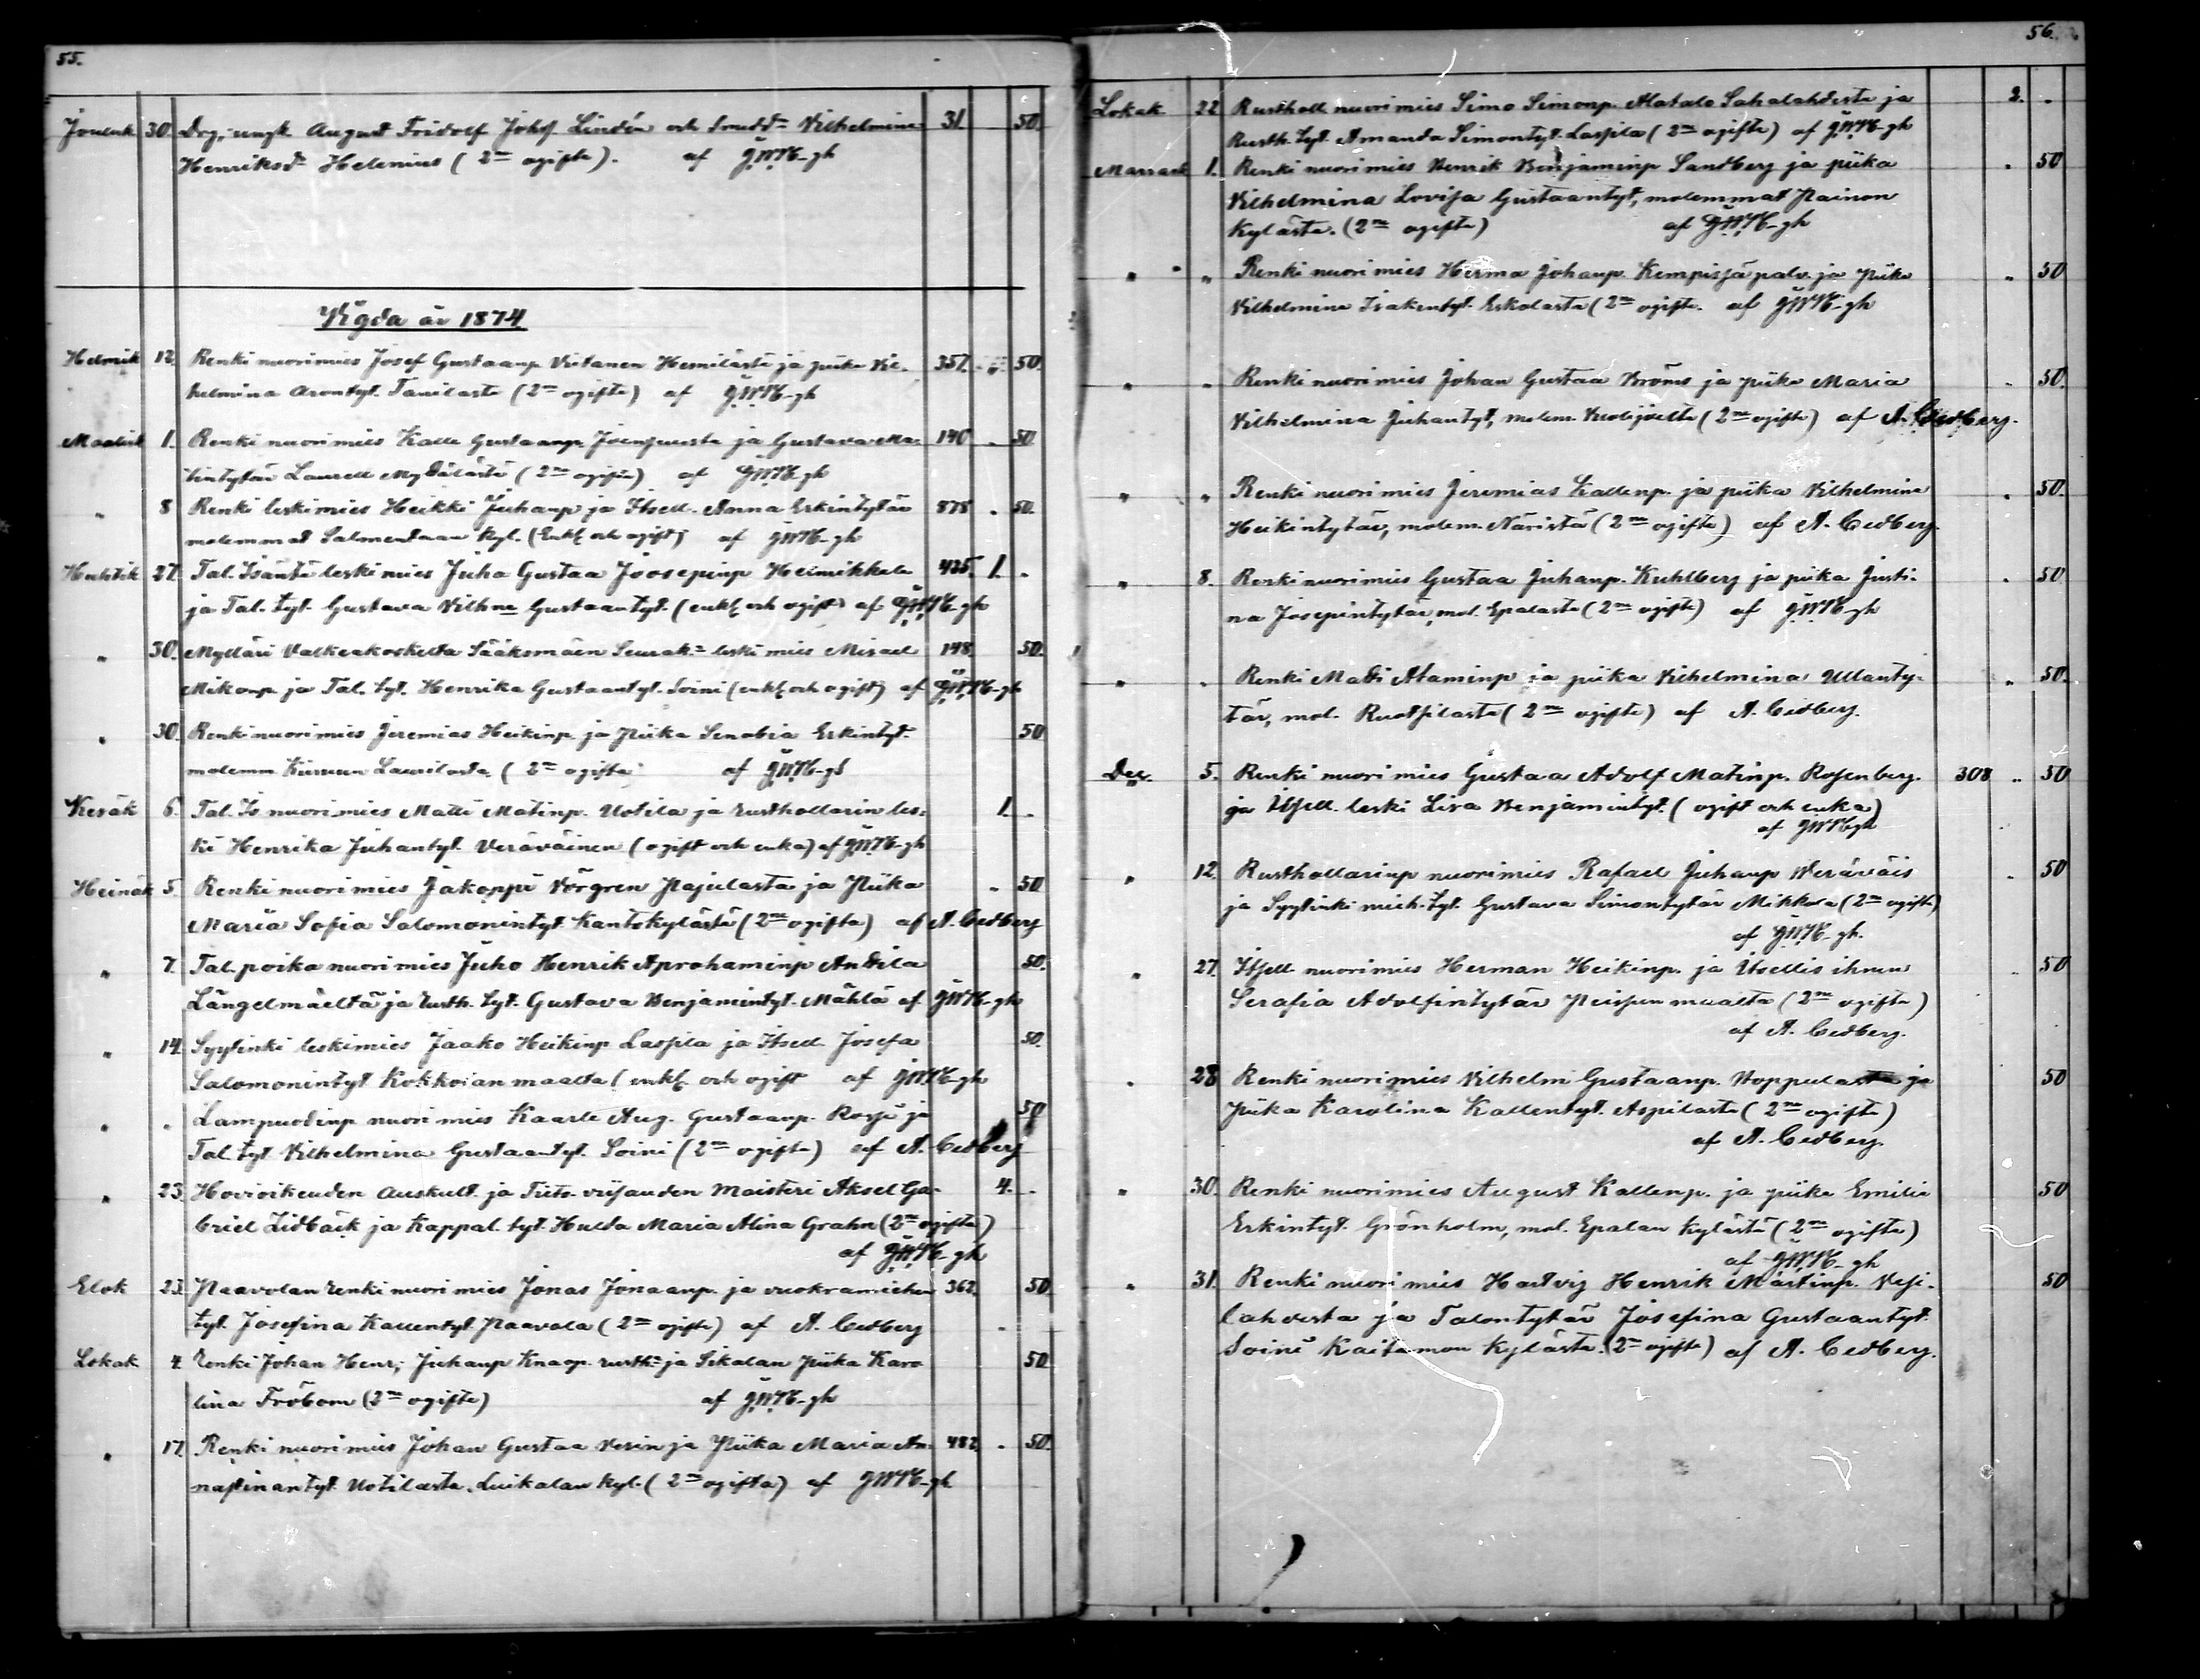 55.
Jouluk 30. Drg, ungk. August Fridolf Johsf Lindén och Smedd:r Vilhelmina 31. 50.
Henriksd:r Helenius (2:ne ogifta). af G.W.H-gh
Vigda år 1874
Helmik 12. Renki nuorimies Josef Gustaanp. Virtanen Hemilästä ja piika Vil- 357. 50.
helmina Arontyt. Tanilasta (2:ne ogifta) af G.W.H-gh
Maalisk 1. Renki nuorimies Kalle Gustaanp. ja Gustava Ma- 140 . 50.
tintytär Laurell (2:ne ogifta) af G.W.H-gh
" 8 Renki leskimies Heikki Juhanp ja Itsell. Anna Erkintytär 878 . 50.
molemmat Salmentaan kyl. (Enkl och ogift) af G.W.H-gh
Huhtik 27. Tal. Isäntä leskimies Juha Gustaa Joosepinp Heinikkala 425. 1. .
ja Tal. tyt. Gustava Vilh:na Gustaantyt. (enkl och ogift) af G.W.H-gh
" 30. Mylläri Valkeakoskelta Sääksmäen Seurak:a leskimies Misael 148. 50.
Mikonp. ja Tal. tyt. Henrika Gustaantyt. Soini (enkl och ogift) af G.W.H-gh
" 30. Renki nuorimies Jeremias Heikinp. ja Piika Senobia Erkintyt. 50
molemm Laurilasta (2:ne ogifta af G.W.H-gh
Kesäk 6. Tal. Is. nuorimies Matti Matinp. Uotila ja rusthollarin les- 1. .
ki Henrika Juhantyt. Veräväinen (ogift och enka) af G.W.H-gh
Heinäk 5. Renki nuorimies Jakoppi Norgren Pajulasta ja Piika . 50
Maria Sofia Salomonintyt. Kantokylästä (2:ne ogifta) af A. Cedberg
" 7. Tal. poika nuorimies Juho Henrik Aprahaminp Anttila 50.
Längelmäeltä ja rusth. tyt. Gustava Benjamintyt. Mählä af G.W.H-gh
" 14. Syytinki leskimies Jaako Heikinp Laspla ja Itsell. Josefa 50.
Salomonintyt. Kokkoian maalta (enkl och ogift af G.W.H-gh
" . Lampuodinp nuorimies Kaarle Aug. Gustaanp. ja 50
Tal. tyt Vilhelmina Gustaantyt. Soini (2:ne ogifta) af A. Cedberg
" 23. Hovioikeuden Auskult. ja Maisteri Aksel Ga- 4. .
briel Lidbäck ja Kappal. tyt. Hulda Maria Alina Grahn (2:ne ogifta)
af G.W.H-gh
Elok 23. Paavolan renki nuorimies Jonas Jonaanp. ja vuokramiehen 362. 50.
tyt. Josefina Kallentyt. Paavola (2:ne ogifta) af A. Cedberg
Lokak 4. renki Johan Henr; Juhanp Knaap. rusth:a ja Sikalan Piika Karo 50.
lina Fröbom (2:ne ogifta) af G.W.H-gh
" 17. Renki nuorimies Johan Gustaa Verin ja Piika Maria An- 482. . 50.
nastinantyt. Uotilasta, Luikalan kyl. (2:ne ogifta) af G.W.H-gh
56.
Lokak 22 Rustholl nuorimies Simo Simonp. Alatalo Sahalahdesta ja 2. .
Rusth. tyt. Amanda Simontyt. Laspila (2:ne ogifta) af G.W.H-gh
Marrask 1. Renki nuorimies Henrik Benjaminp Sandberg ja piika . 50
Vilhelmina Lovisa Gustaantyt, molemmat Painon
kylästä. (2:ne ogifta) af G.W.H-gh
" " Renki nuorimies Herma Johanp. ja Piika " 50
Vilhelmina Isakentyt. Eskolasta (2:ne ogifta. af G.W.H-gh
" " Renki nuorimies Johan Gustaa Broms ja piika Maria . 50.
Vilhelmina Juhantyt, molem. (2:ne ogifta) af A. Cedberg.
" " Renki nuorimies Jeremias Kallenp. ja piika Vilhelmina . 50.
Heikintytär, molem. Näristä (2:ne ogifta) af A. Cedberg.
" 8. Renki nuorimies Gustaa Juhanp. Kuhlberg ja piika Justi- . 50
na Josepintytär, mol. Epalasta (2:ne ogifta) af G.W.H-gh
" . Renki Matti Ataminp ja piika Vilhelmina Ullanty- " 50.
tär, mol. Ruotsilasta (2:ne ogifta) af A. Cedberg.
Dec. 5. Renki nuorimies Gustaa Adolf Matinp. Rosenberg. 308 .. 50
ja Itsell. leski Lisa Benjamintyt. (ogift och enka)
af G.W.H-gh
" 12. Rusthollarinp nuorimies Rafael Juhanp Weräväis . 50
ja Syytinkimieh. tyt. Gustava Simontytär Mikkola (2:ne ogifta)
af G.W.H-gh.
" 27. Itsell nuorimies Herman Heikinp. ja Itsellis ihmn .. 50
Serafia Adolfintytär maalta (2:ne ogifta)
af A. Cedberg.
" 28 Renki nuorimies Vilhelm Gustaanp. ja 50
Piika Karolina Kallentyt. Aspilasta (2:ne ogifta)
af A. Cedberg.
" 30. Renki nuorimies August Kallenp. ja piika Emilia 50
Erkintyt. Grönholm, mol. Epalan kylästä (2:ne ogifta)
af G.W.H-gh
" 31. Renki nuorimies Hartvig Henrik Martinp. Vesi- 50
lahdesta ja Talontytär Josefina Gustaantyt.
Soini Kaitamon kylästä. (2:ne ogifta) af A. Cedberg.